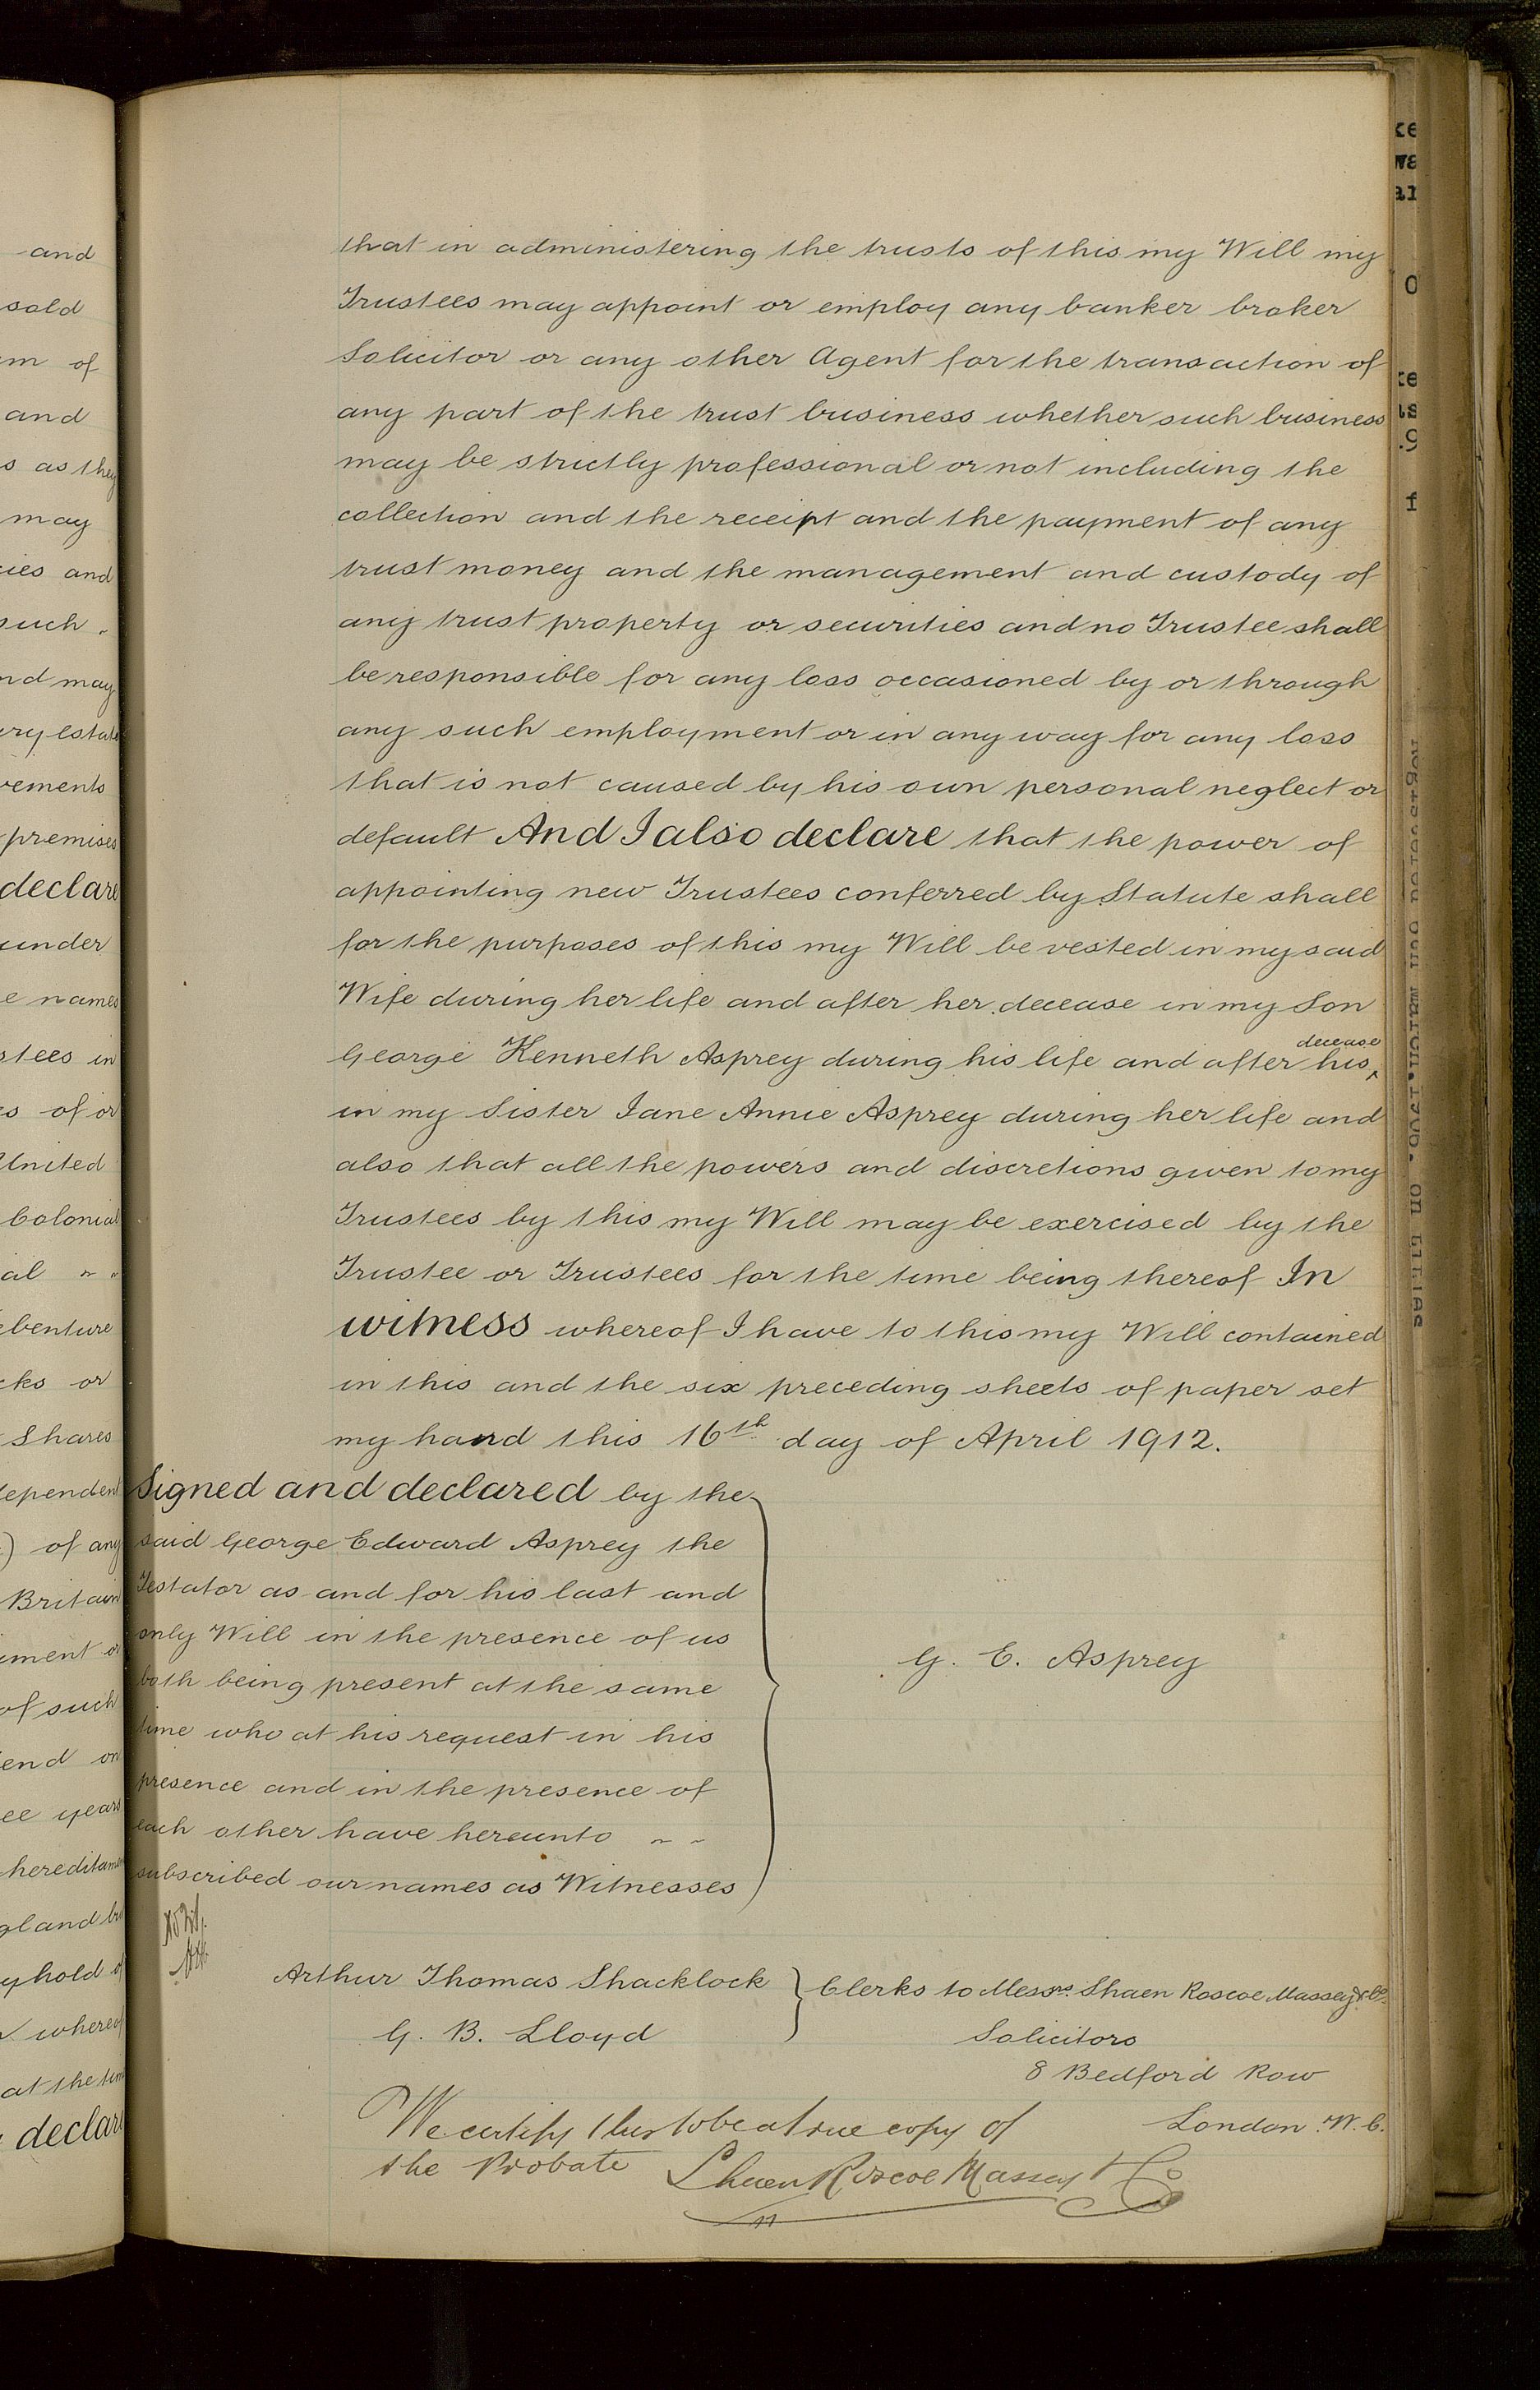 and
sold
of
and
s as they
may
and
such
nd may
declare
under
names
in
of or
United
Colonial
or
Shares
of any
Britain
of such
years
whereof
at the
declare
that in administering the trusts of this my Will my
Trustees may appoint or employ any banker broker
Solicitor or any other Agent for the transaction of
any part of the trust business whether such business
may be strictly professional or not including the
collection and the receipt and the payment of any
trust money and the management and custody of
any trust property or securities and no Trustee shall
be responsible for any loss occasioned by or through
any such employment or in any way for any loss
that is not caused by his own personal neglect or
default And I also declare that the power of
appointing new Trustees conferred by Statute shall
for the purposes of this my Will be vested in my said
Wife during her life and after her decease in my Son
George Kenneth Asprey during his life and after his decease
in my Sister Jane Annie Asprey during her life and
also that all the powers and discretions given to my
Trustees by this my Will may be exercised by the
Trustee or Trustees for the time being thereof In
witness whereof I have to this my Will contained
in this and the six preceding sheets of paper set
my hand this 16th day of April 1912.
Signed and declared by the
said George Edward Asprey the
Testator as and for his last and
only Will in the presence of us
both being present at the same
time who at his request in his
presence and in the presence of
each other have hereunto
subscribed our names as Witnesses
G. E. Asprey
Arthur Thomas Shacklock
G. B. Lloyd
Clerks to Messrs. Shaen Roscoe Massey & Co.
Solicitors
8 Bedford Row
London W.C.
We certify this to be a true copy of
the Probate Shaen Roscoe Massey & Co